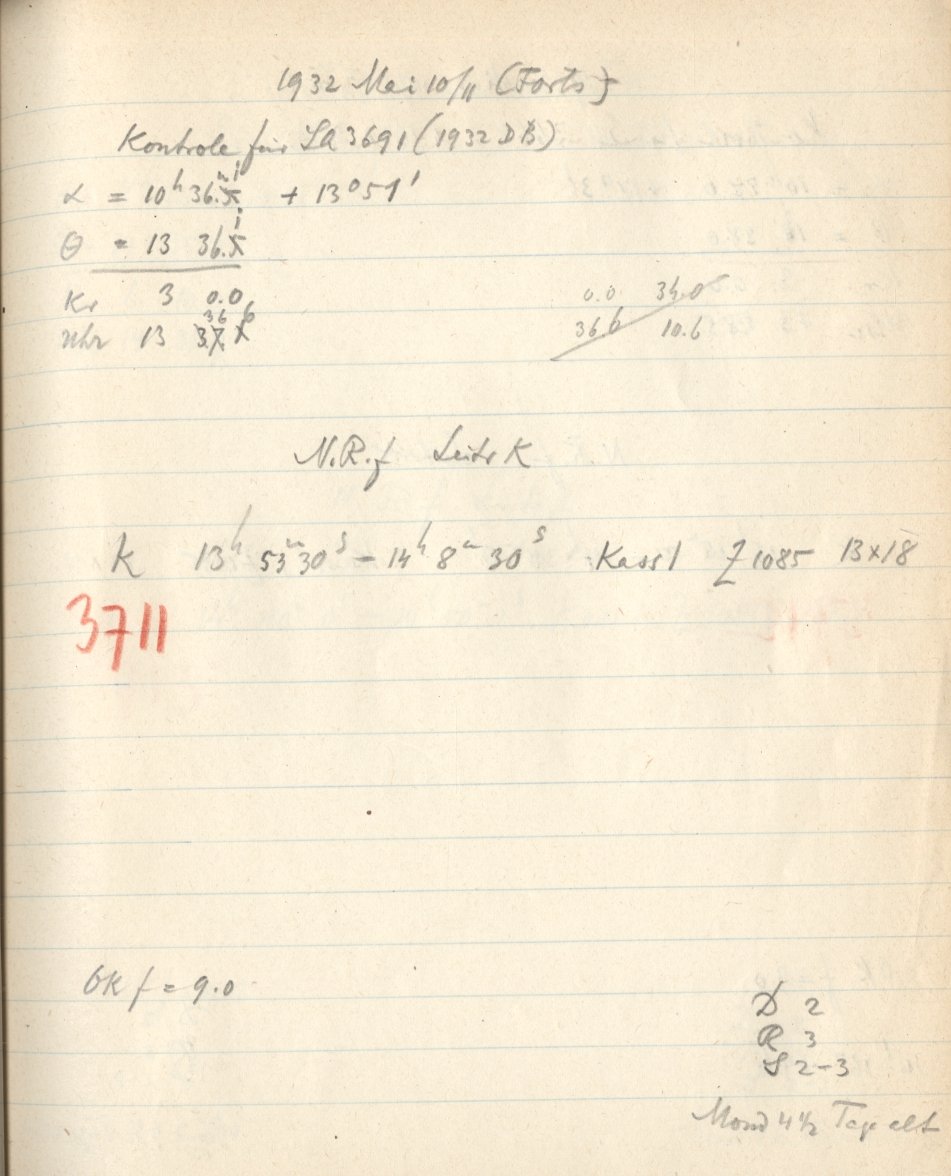 1932 Mai 10/11 (Forts)
Kontrole für La 3691 (1932 DB)
α = 10h 36.m1 + 13°51'
Θ = 13 36.1
Kr 3 0.0
Uhr 13 36.6
0.0 34.0
36.6 10.6
N.R.f Leitr K
K 13h 53m 30s – 14h 8m 30s Kass 1 Z 1085 13x18
3711
OK f = 9.0
D 2
R 3
S 2–3
Mond 4 1/2 Tage alt